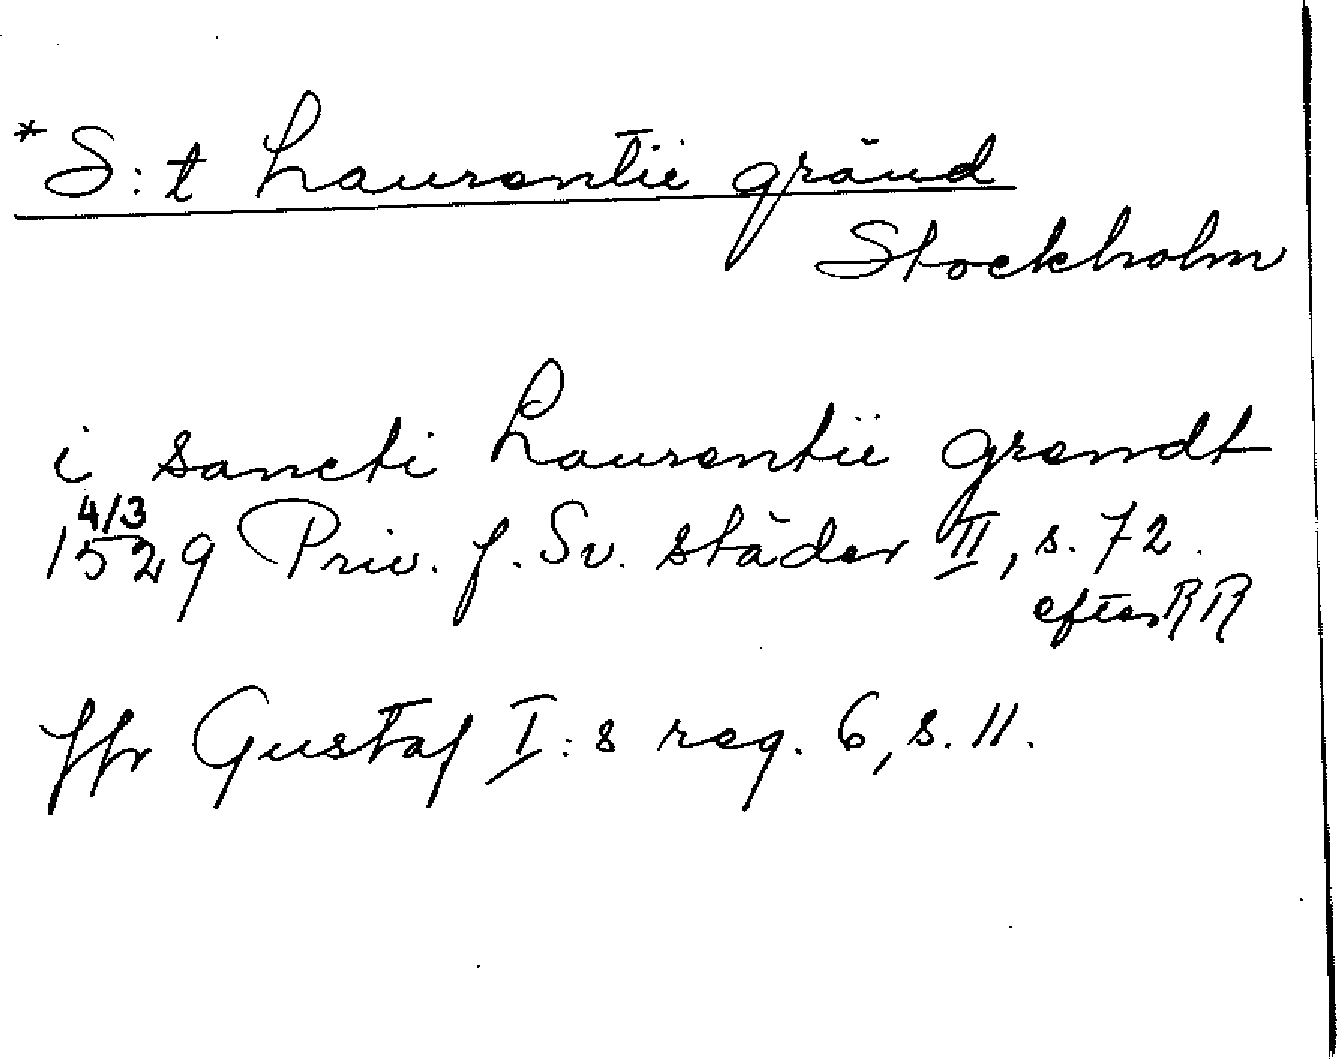 *S:t Laurentii gränd
Stockholm
i sancti Laurentii grendt
4/3
1529 Priv. f. Sv. städer II, s. 72.
efter RR
Jfr Gustaf I:s reg. 6, s. 11.